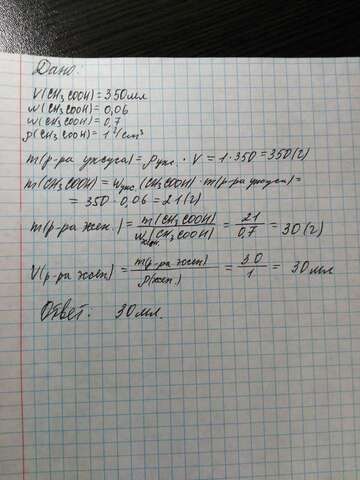 Дано:
V(CH₃COOH) = 350мл
w(CH₃COOH) = 0,06
w(CH₃COOH) = 0,7
ρ(CH₃COOH) = 1 г/cm³
m(р-ра уксуса) = ρукс. · V = 1 · 350 = 350(г)
m(CH₃COOH) = wукс.(CH₃COOH) · m(р-ра уксуса) =
= 350 · 0,06 = 21(г)
m(р-ра жен.) = m(CH₃COOH) / w(CH₃COOH) = 21 / 0,7 = 30(г)
V(р-ра жен) = m(р-ра жен) / ρ(жен.) = 30 / 1 = 30мл
Ответ: 30мл.